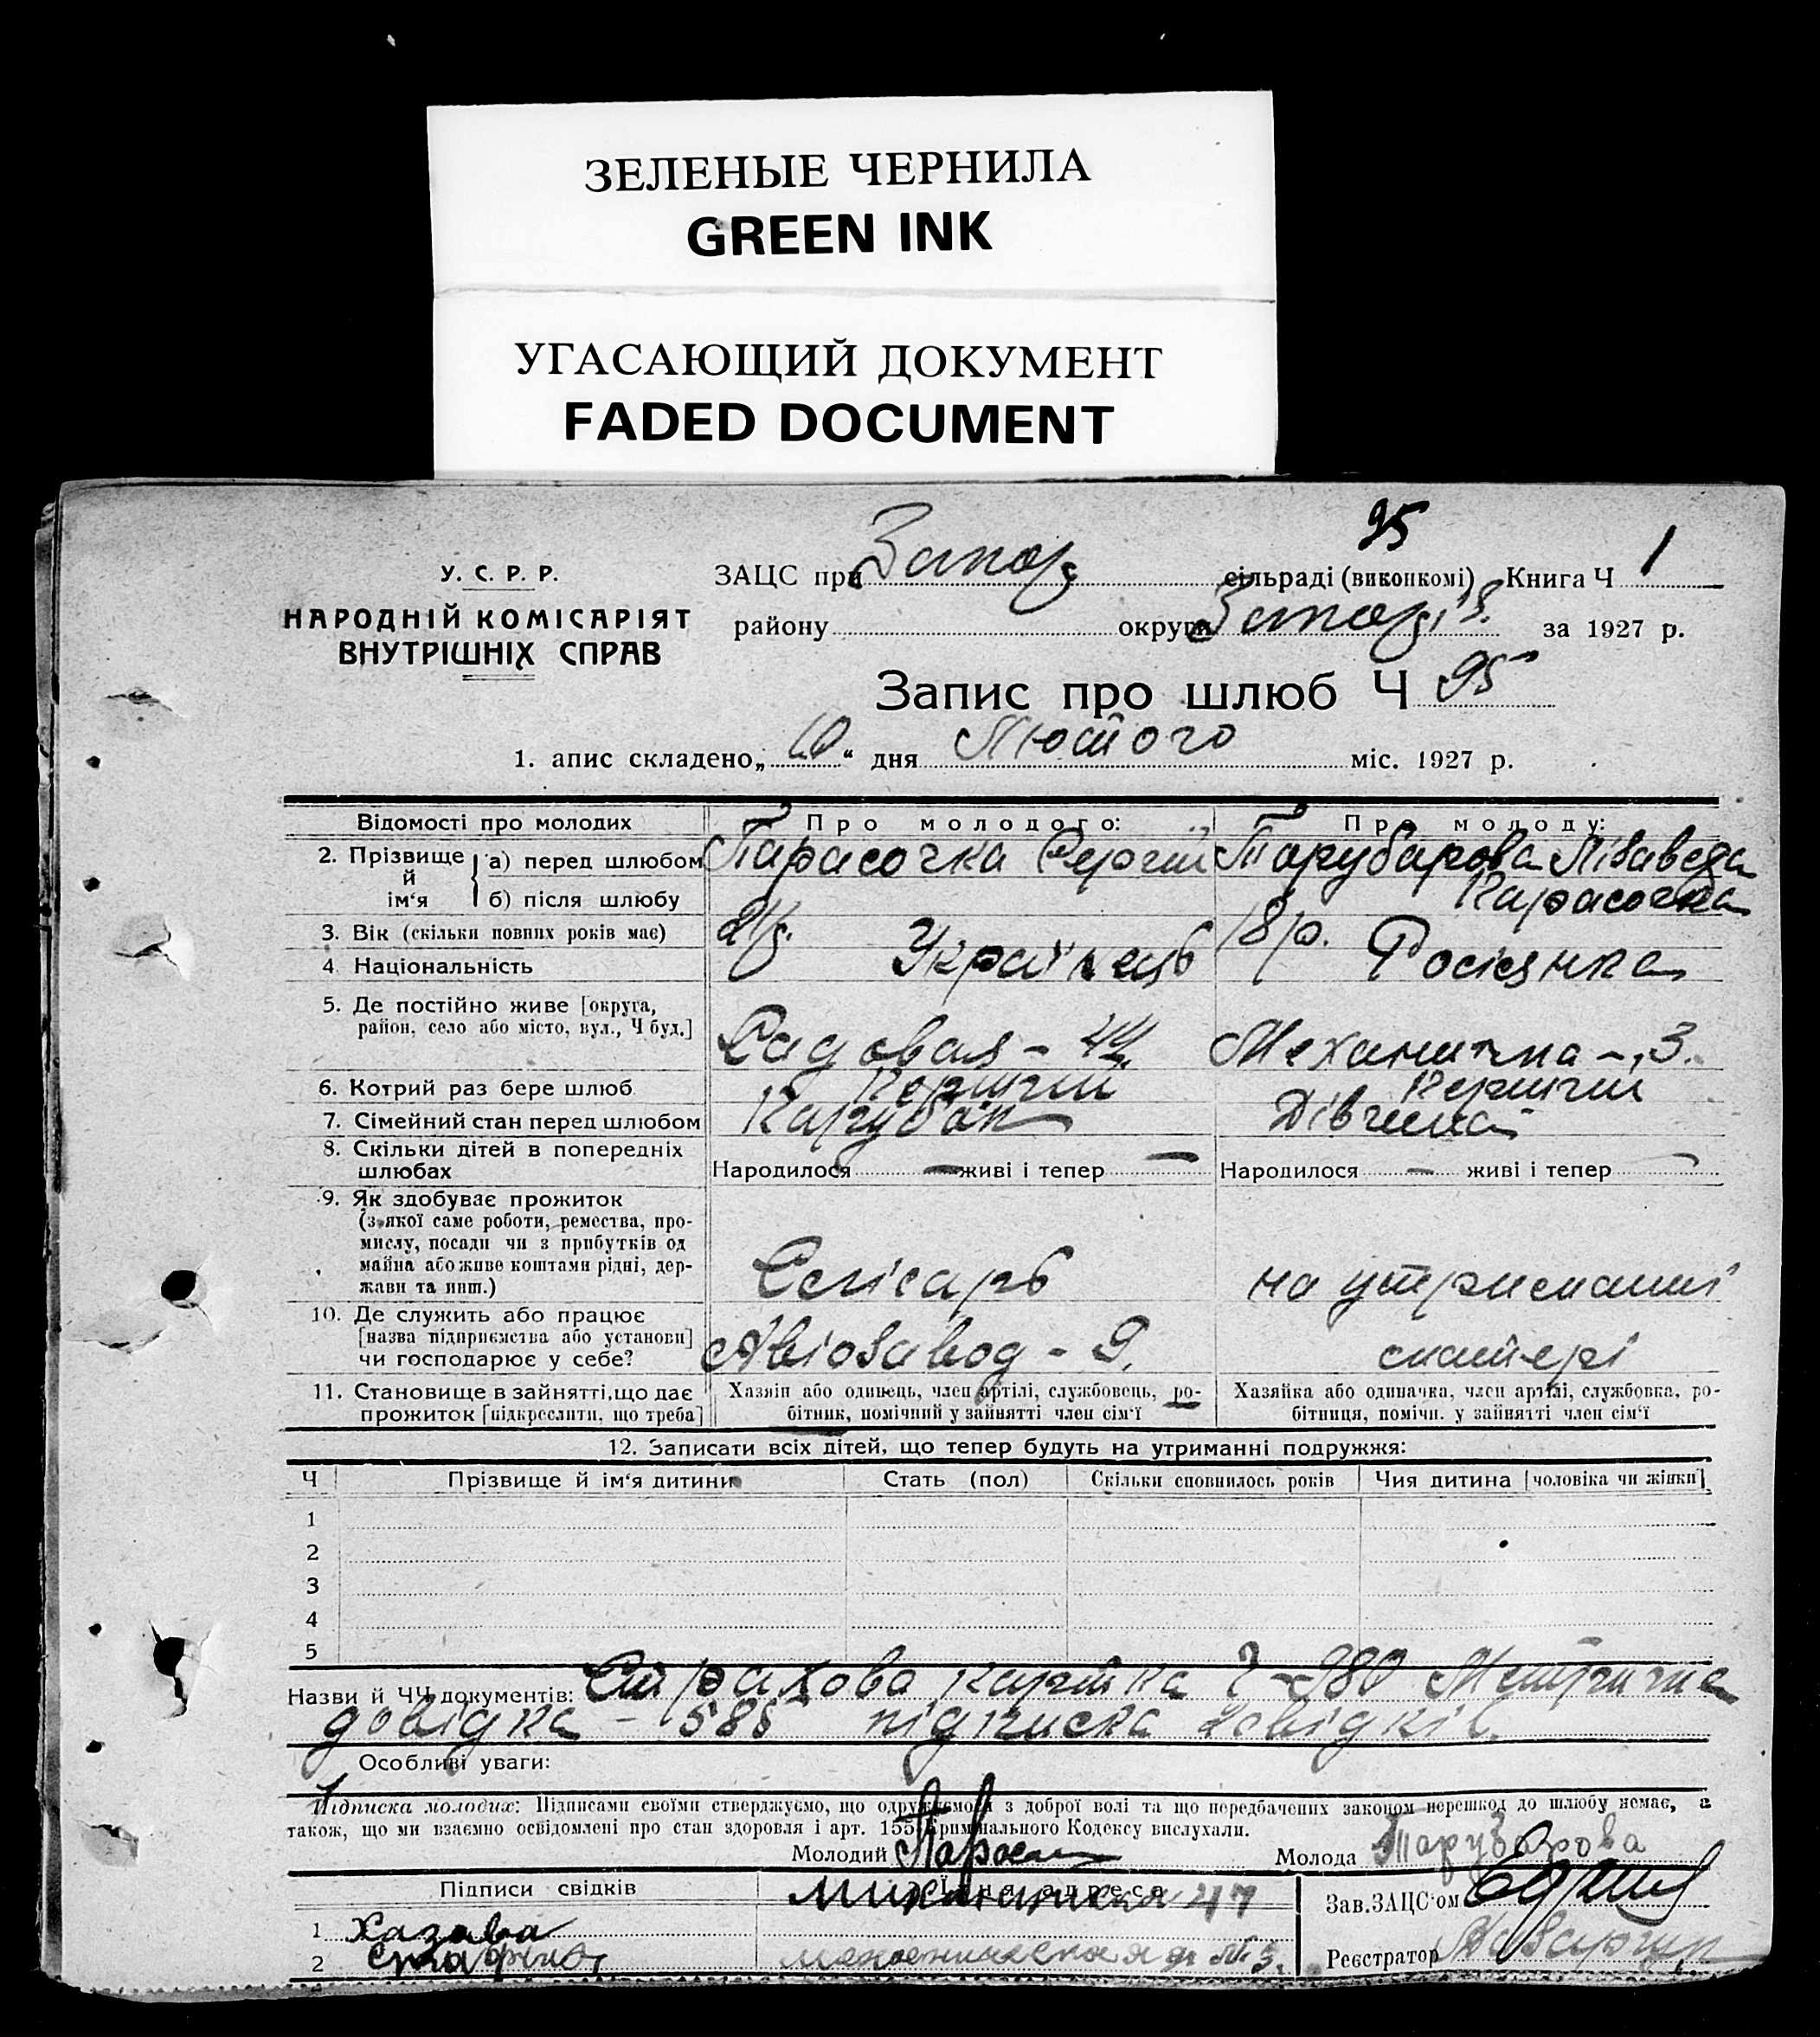 ЗЕЛЕНЫЕ ЧЕРНИЛА
GREEN INK
УГАСАЮЩИЙ ДОКУМЕНТ
FADED DOCUMENT
95
У. С. Р. Р.
НАРОДНІЙ КОМІСАРІЯТ
ВНУТРІШНІХ СПРАВ
ЗАЦС при Запор сільраді (виконкомі) Книга Ч 1
району округи Запоріз. за 1927 р.
Запис про шлюб Ч 95
1. апис складено „10“ дня Лютого міс. 1927 р.
Відомості про молодих Про молодого: Про молоду:
2. Прізвище й ім‘я а) перед шлюбом Парасочка Сергій Тарубарова Лізавета
б) після шлюбу Парасочка
3. Вік (скільки повних років має) 21р. 18р.
4. Національність Українець Росіянка
5. Де постійно живе [округа,
район, село або місто, вул., Ч буд.] Садовая - 44. Механична - 3.
6. Котрий раз бере шлюб Перший Перший
7. Сімейний стан перед шлюбом Парубок Дівчина
8. Скільки дітей в попередніх
шлюбах Народилося — живі і тепер — Народилося — живі і тепер —
9. Як здобуває прожиток
(з якої саме роботи, ремества, про-
мислу, посади чи з прибутків од
майна або живе коштами рідні, дер-
жави та инш.) Слісарь на утриманні
10. Де служить або працює
[назва підприємства або установи]
чи господарює у себе? Авіозавод - 9. матері
11. Становище в зайнятті, що дає
прожиток [підкреслити, що треба]
Хазяїн або одинець, член артілі, службовець, ро-
бітник, помічний у зайнятті член сім‘ї
Хазяйка або одиначка, член артілі, службовка, ро-
бітниця, помічн. у зайнятті член сім‘ї
12. Записати всіх дітей, що тепер будуть на утриманні подружжя:
Ч Прізвище й ім‘я дитини Стать (пол) Скільки сповнилось років Чия дитина [чоловіка чи жінки]
1
2
3
4
5
Назви й ЧЧ документів: Страхова картка Ч - 980 Метрична
довідка - 585 підписка свідків.
Особливі уваги:
Підписка молодих: Підписами своїми стверджуємо, що одружуємося з доброї волі та що передбачених законом перешкод до шлюбу немає, а
також, що ми взаємно освідомлені про стан здоровля і арт. 155 Кримінального Кодексу вислухали.
Молодий Молода Тарубарова
Підписи свідків Їхня адреса 47 Зав. ЗАЦС‘ом
1 Хазова
2 № 3. Реєстратор